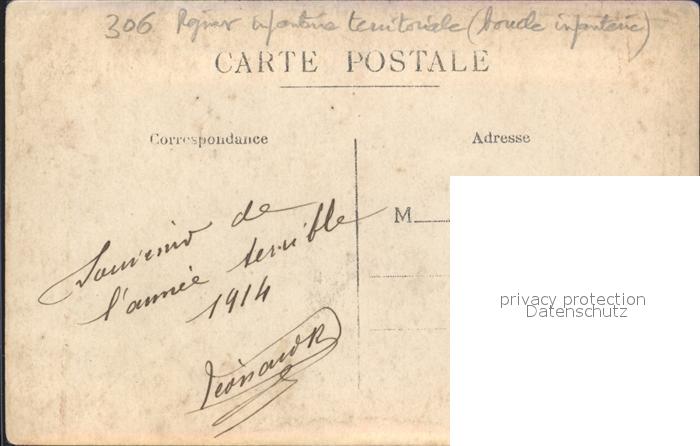 306 infanterie territoriale ( infanterie)
CARTE POSTALE
Correspondance
Adresse
M
Souvenir de
l'année terrible
1914
Léonard
privacy protection
Datenschutz